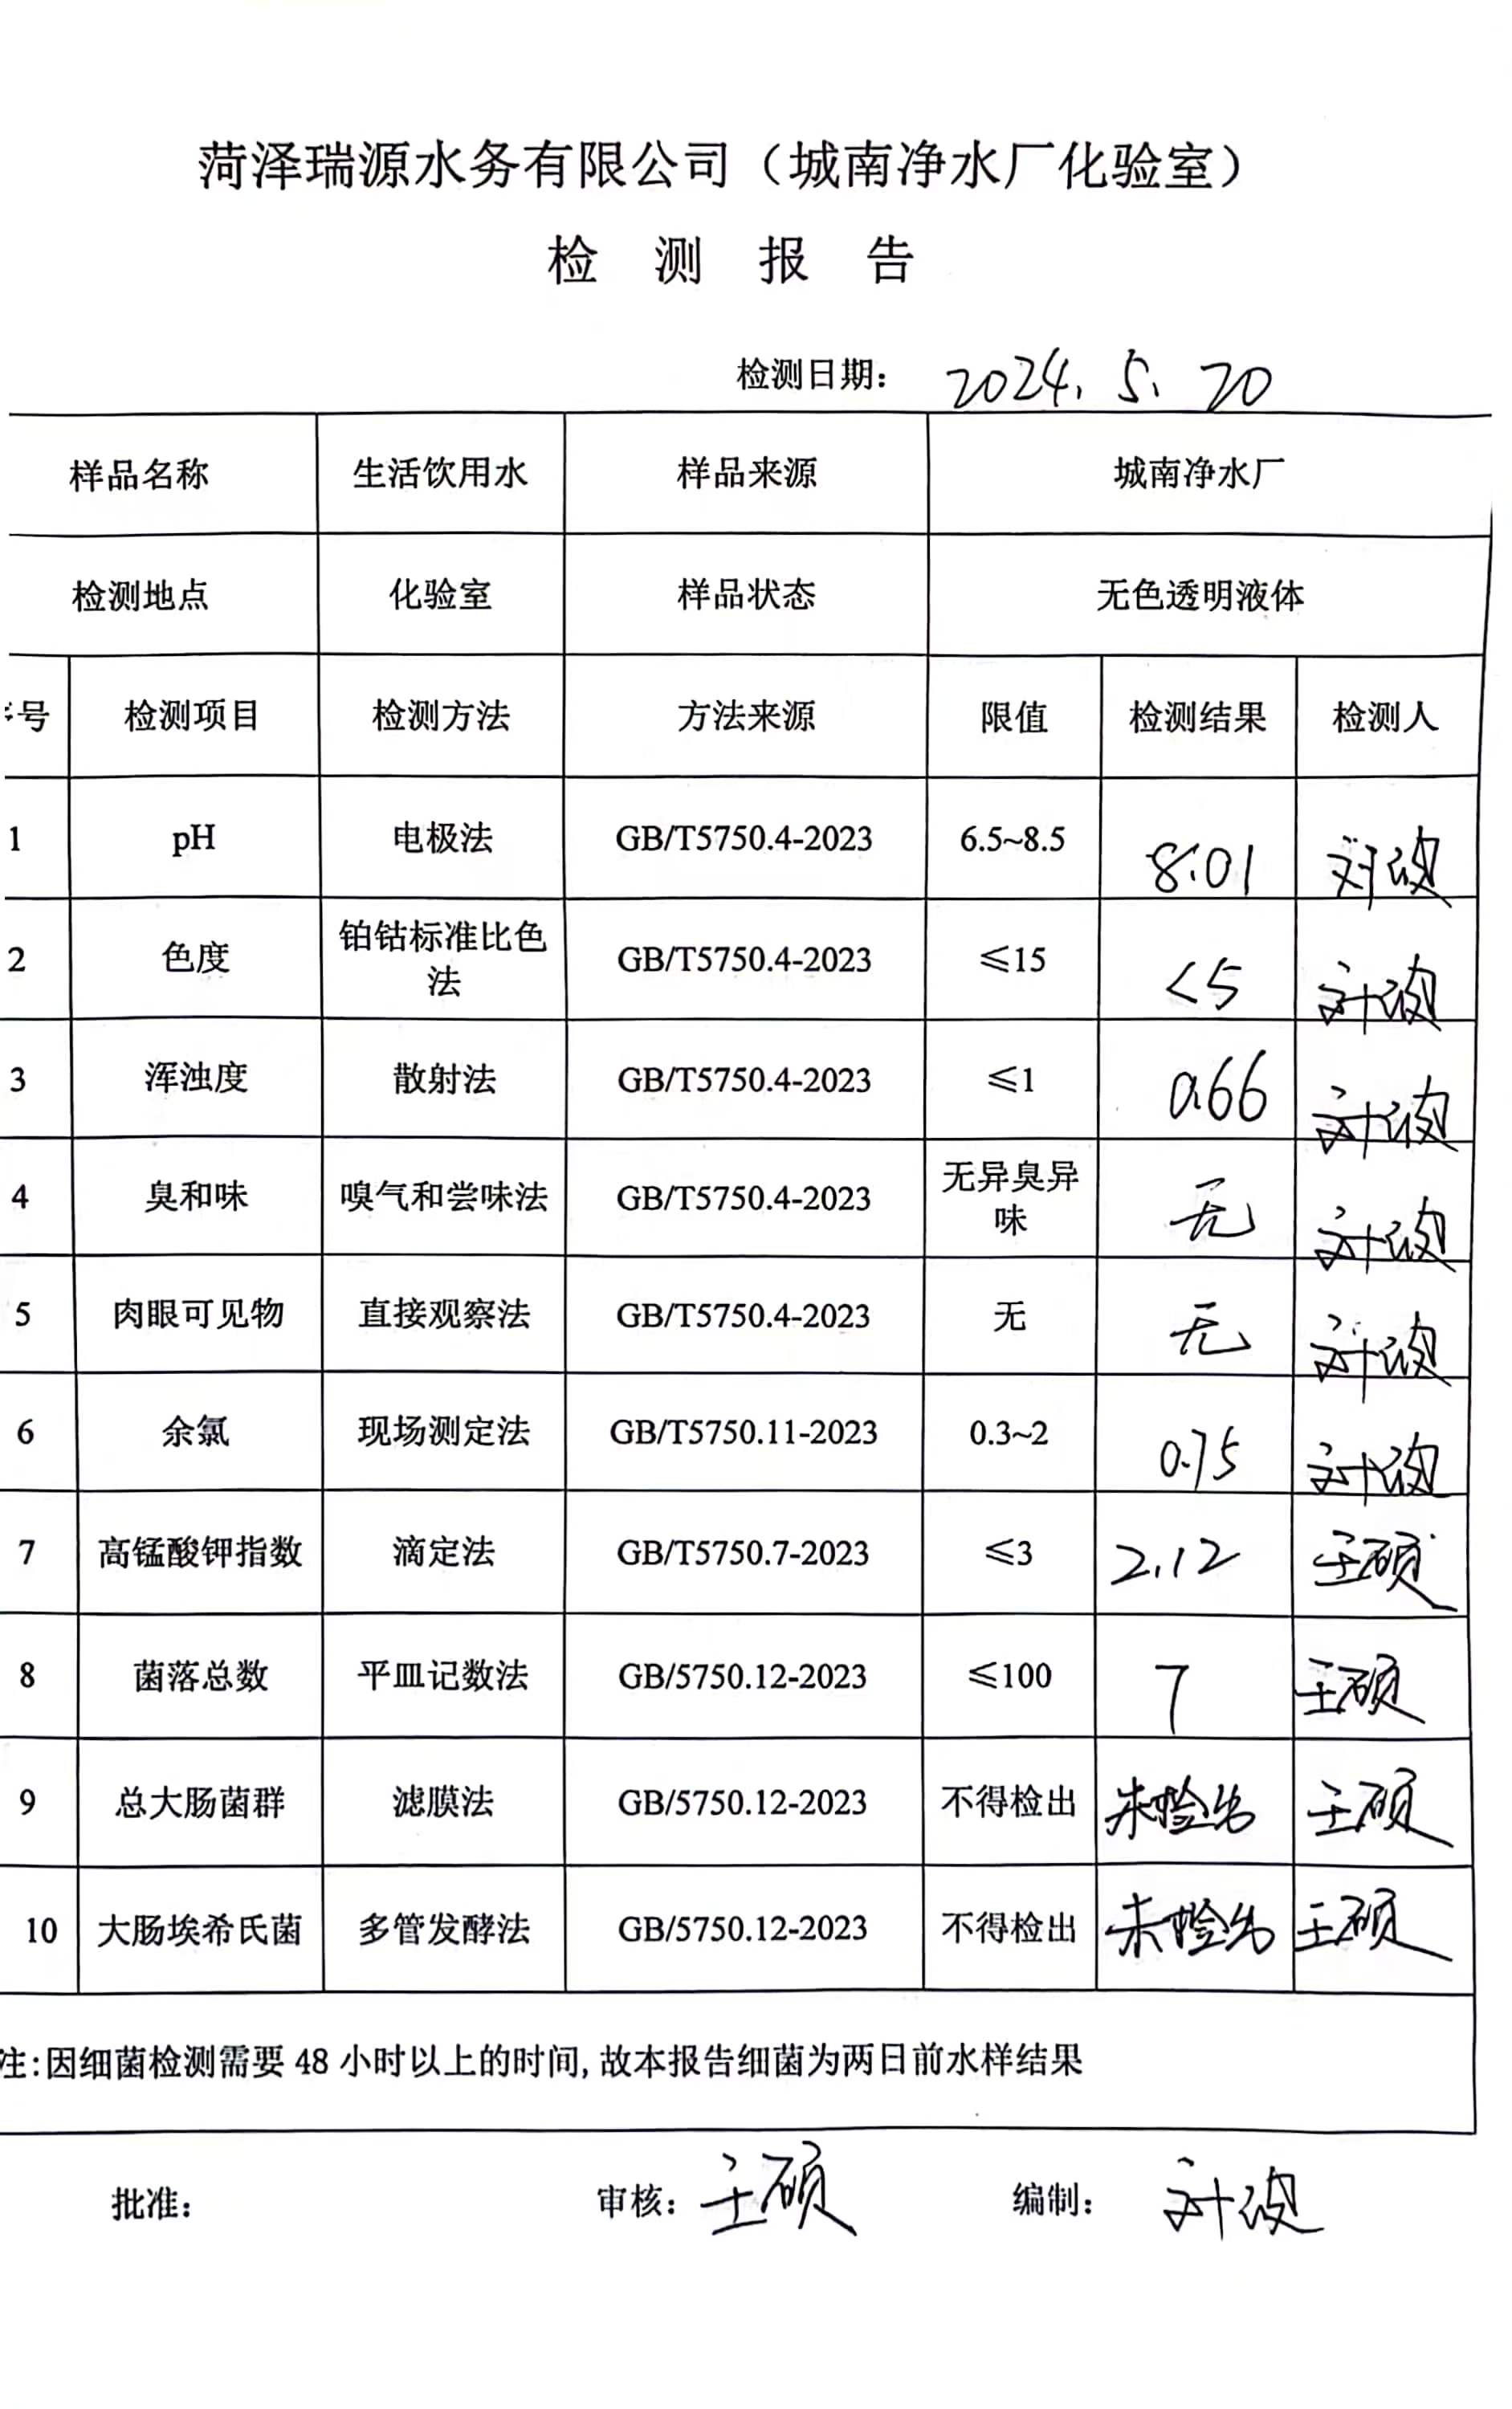 菏泽瑞源水务有限公司（城南净水厂化验室）
检 测 报 告
检测日期： 2024. 5. 20
样品名称 生活饮用水 样品来源 城南净水厂
检测地点 化验室 样品状态 无色透明液体
号 检测项目 检测方法 方法来源 限值 检测结果 检测人
1 pH 电极法 GB/T5750.4-2023 6.5~8.5 8.01 刘波
2 色度 铂钴标准比色法 GB/T5750.4-2023 ≤15 <5 刘波
3 浑浊度 散射法 GB/T5750.4-2023 ≤1 0.66 刘波
4 臭和味 嗅气和尝味法 GB/T5750.4-2023 无异臭异味 无 刘波
5 肉眼可见物 直接观察法 GB/T5750.4-2023 无 无 刘波
6 余氯 现场测定法 GB/T5750.11-2023 0.3~2 0.75 刘波
7 高锰酸钾指数 滴定法 GB/T5750.7-2023 ≤3 2.12 王硕
8 菌落总数 平皿记数法 GB/5750.12-2023 ≤100 7 王硕
9 总大肠菌群 滤膜法 GB/5750.12-2023 不得检出 未检出 王硕
10 大肠埃希氏菌 多管发酵法 GB/5750.12-2023 不得检出 未检出 王硕
注:因细菌检测需要 48 小时以上的时间,故本报告细菌为两日前水样结果
批准： 审核：王硕 编制：刘波